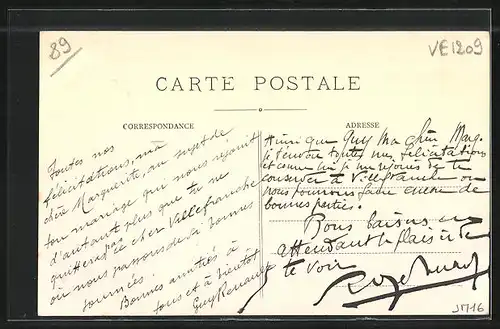 89
VE1209
CARTE POSTALE
CORRESPONDANCE
ADRESSE
Toutes nos
félicitations, ma
chère Marguerite, au sujet de
ton mariage qui nous réjouit
d'autant plus que tu ne
quitteras pas ce cher Villefranche
où nous passons de si bonnes
journées.
Bonnes amitiés à
tous et à bientôt
Guy
Ainsi que Guy Ma chère Marg.
je t'envoie toutes mes félicitations
et comme lui je me réjouis de te
conserver à Villefranche où
nous pourrons faire encore de
bonnes parties.
Bons baisers en
attendant le plaisir de
te voir
J5716